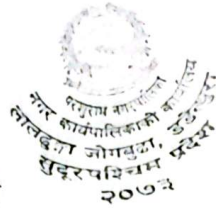 परशुराम नगरपालिका
नगर कार्यपालिकाको कार्यालय
जोगबुढा, डडेल्धुरा
सुदूरपश्चिम प्रदेश
२०७३